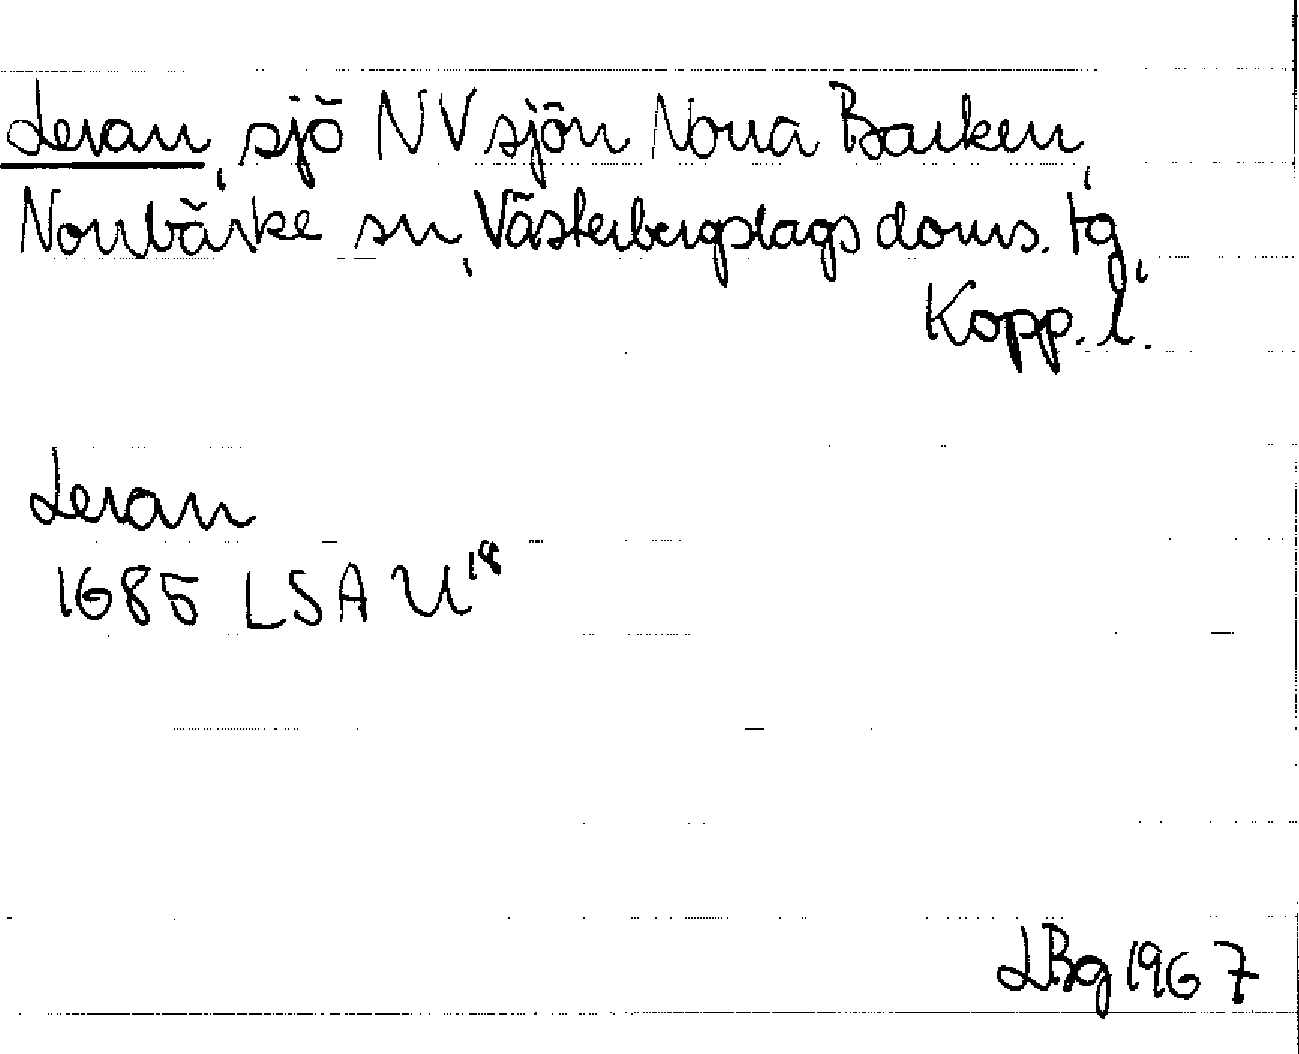 Leran, sjö NV sjön Norra Barken,
Norrbärke sn, Västerbergslags doms. tg,
Kopp. l.
Leran
1685 LSA U18
LBg 1967